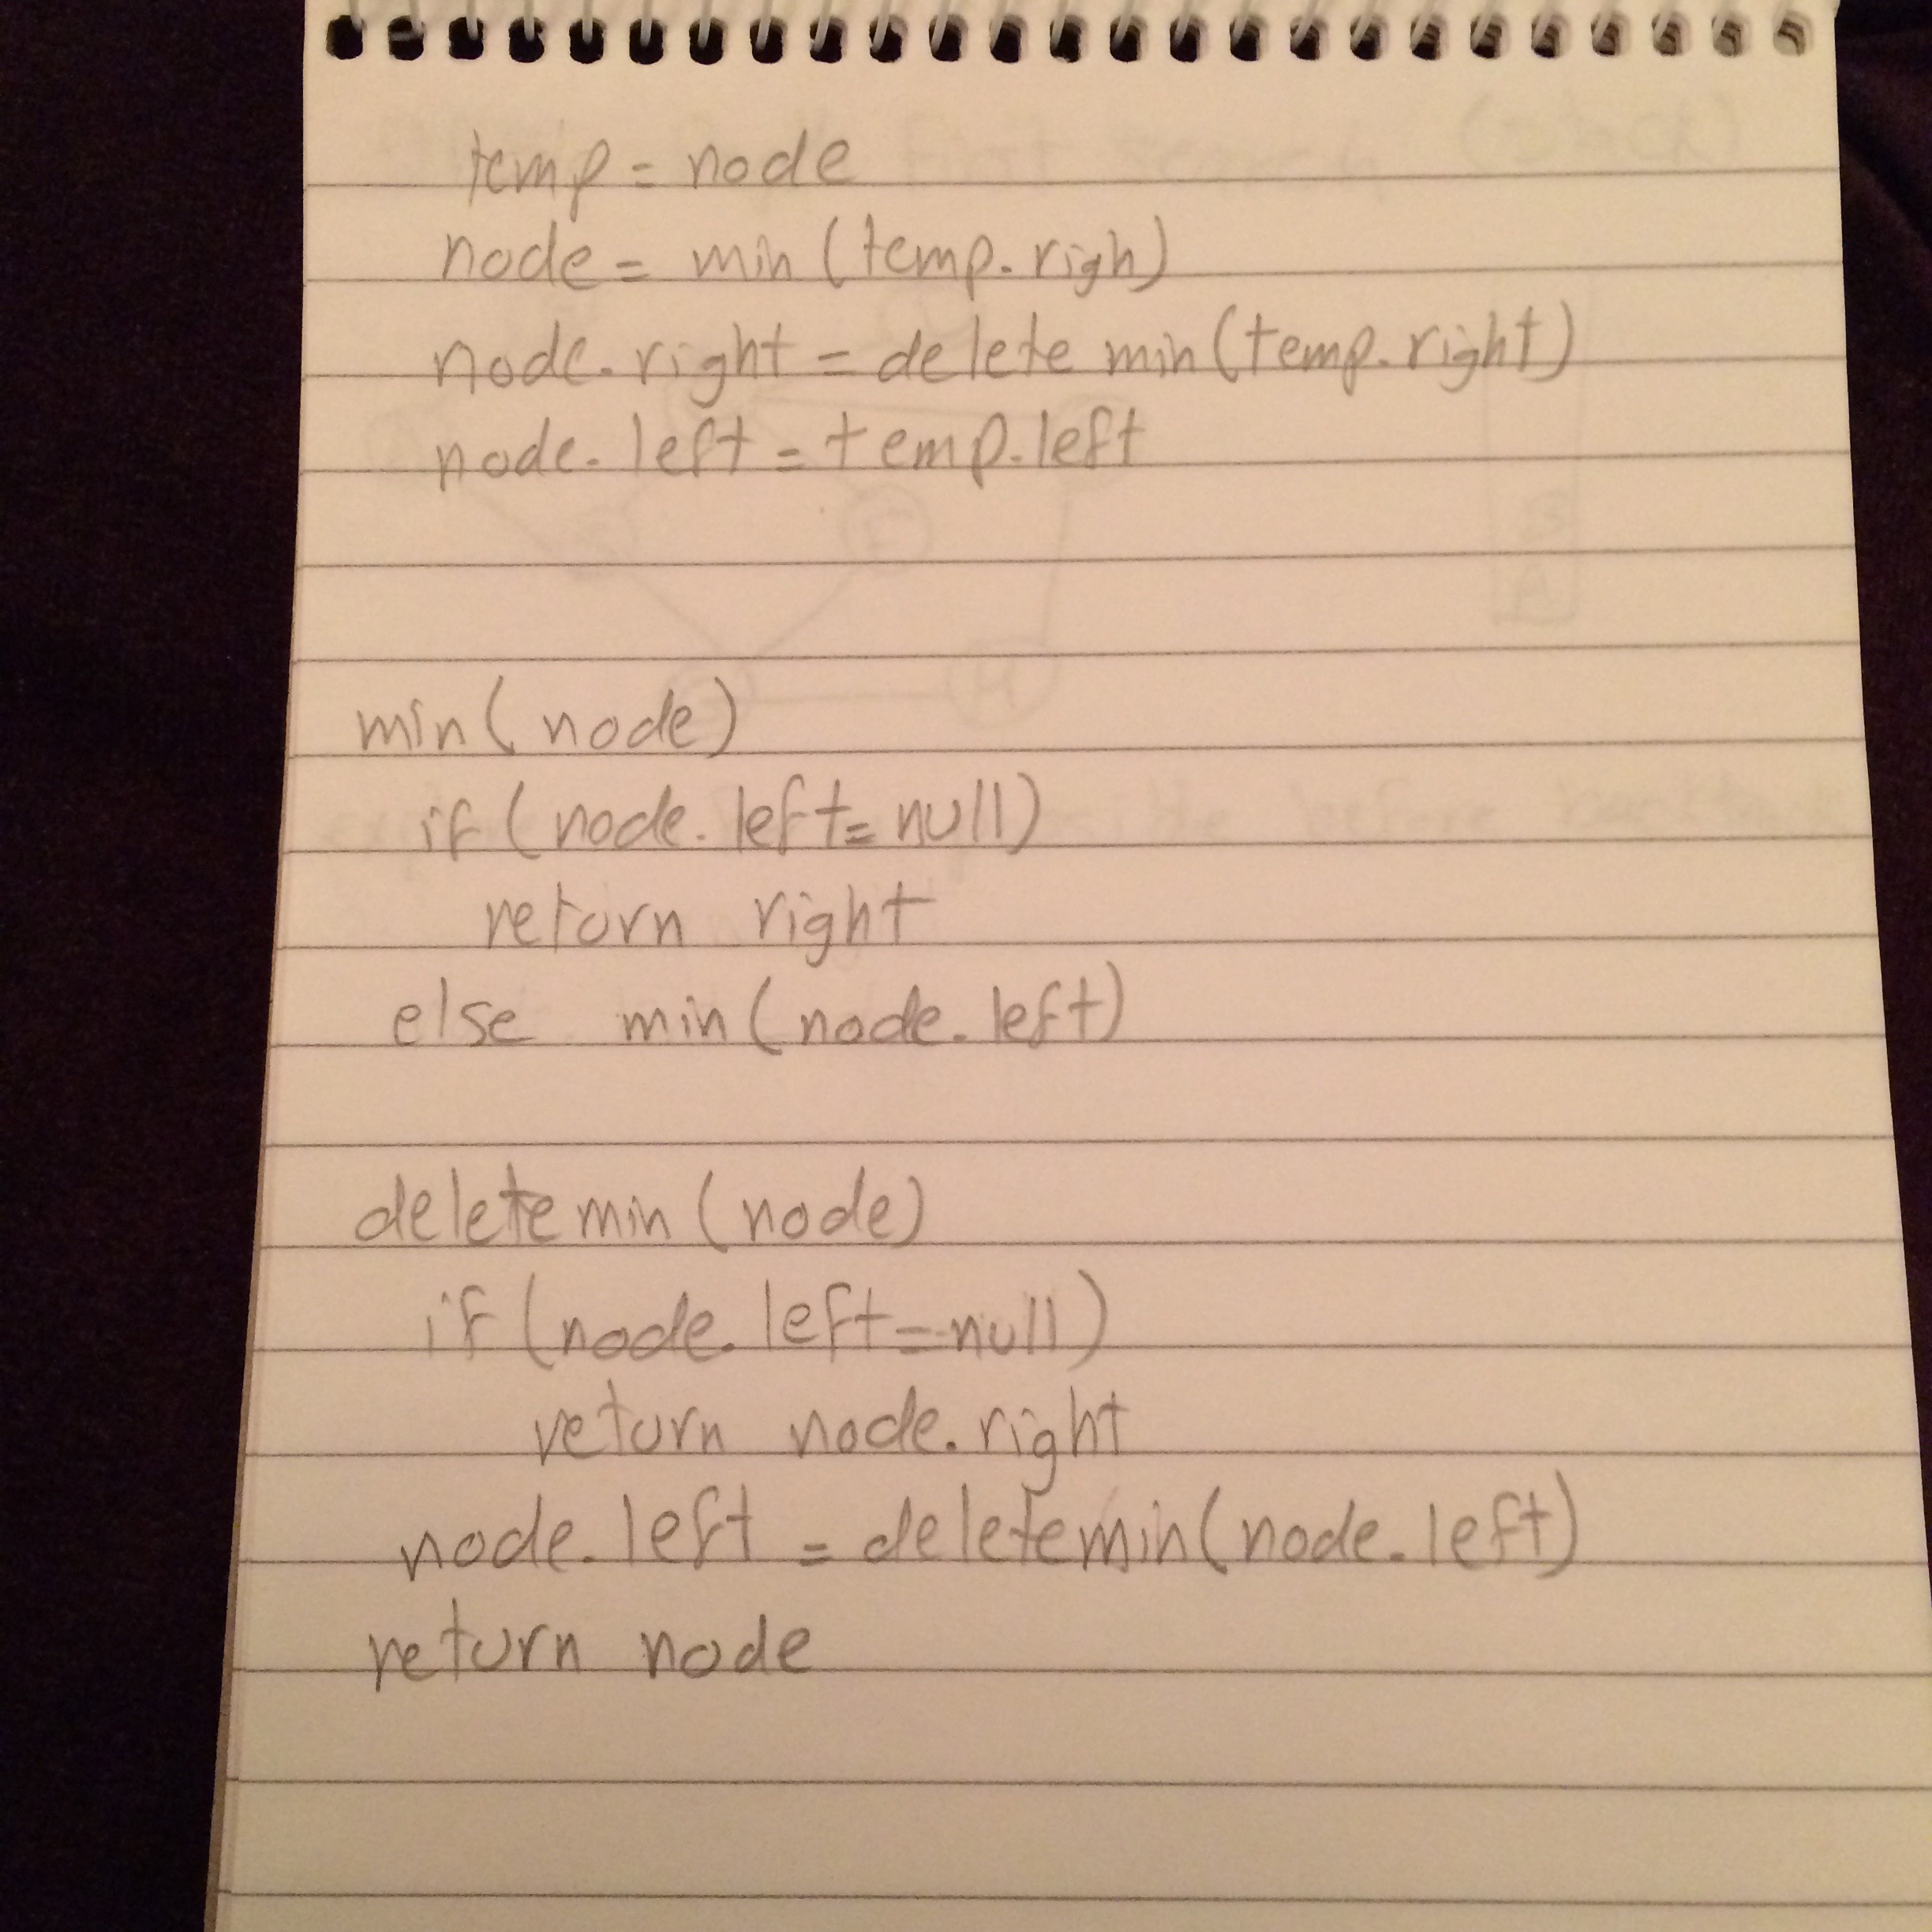 temp = node
node = min (temp.righ)
node.right = delete min (temp.right)
node.left = temp.left
min ( node)
if (node.left = null)
return right
else min (node.left)
delete min (node)
if (node.left = null)
return node.right
node.left = deletemin(node.left)
return node